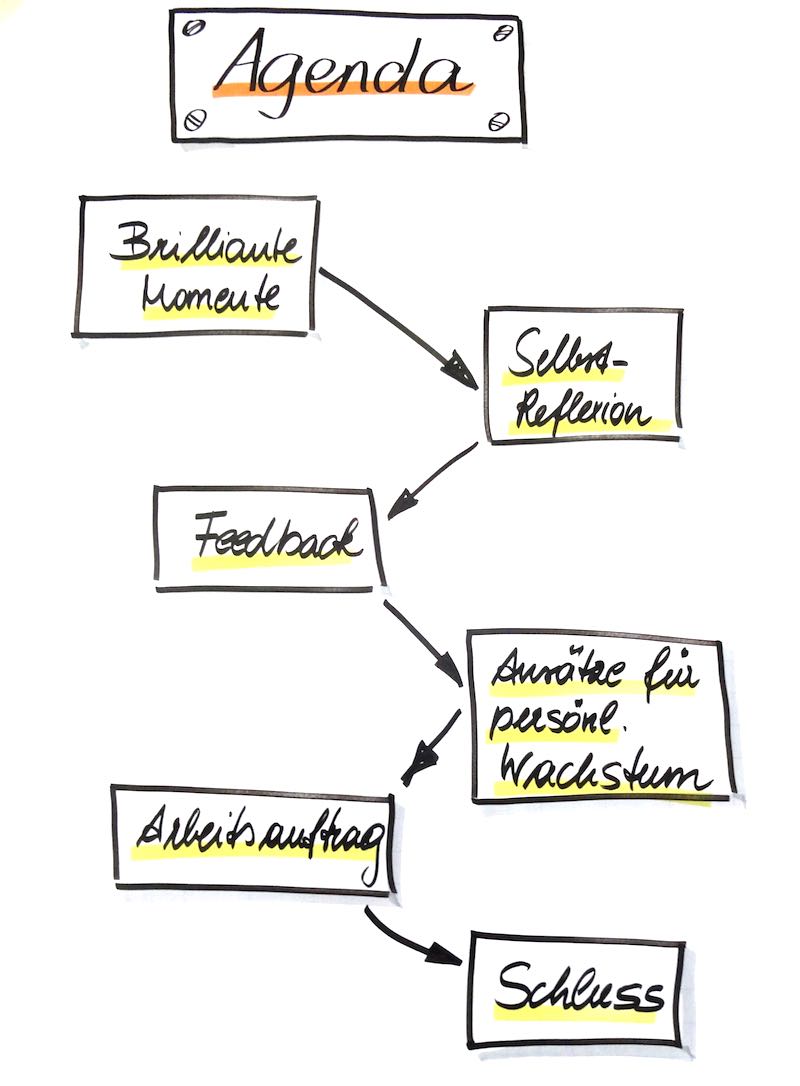 Agenda
Brilliante
Momente
Selbst-
Reflexion
Feedback
Ansätze für
persönl.
Wachstum
Arbeitsauftrag
Schluss